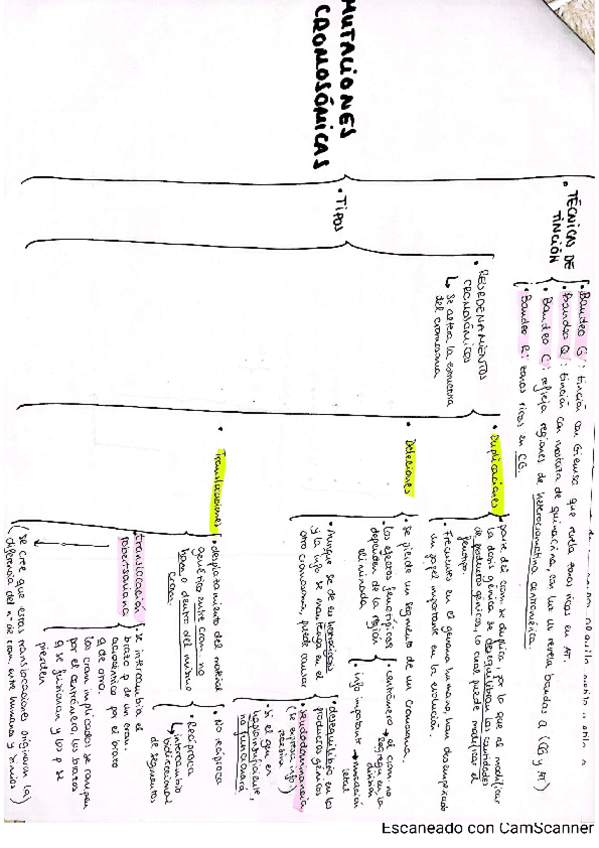 MUTACIONES
CROMOSÓMICAS
• TÉCNICAS DE
TINCIÓN
• Bandeo G: tinción con Giemsa que revela zonas ricas en AT.
• Bandeo Q: tinción con mostaza de quinacrina, con luz UV revela bandas Q (CG y AT)
• Bandeo C: refleja regiones de heterocromatina centromérica.
• Bandeo R: zonas ricas en CG.
• TIPOS
• REORDENAMIENTOS
CROMOSÓMICOS
↳ se altera la estructura
del cromosoma
• Duplicaciones
parte del crom. se duplica, por lo que al modificar
la dosis génica se desequilibran las cantidades
de productos génicos, lo cual puede modificar el
fenotipo
• Frecuentes en el genoma humano, han desempeñado
un papel importante en la evolución.
• Deleciones
• se pierde un segmento de un cromosoma.
• Los efectos fenotípicos
dependen de la región
eliminada
• centrómero → el crom no
segrega en la
división
• info importante → mutación
letal
• Aunque se dé en heterocigosis
y la info se mantenga en el
otro cromosoma, puede causar
• desequilibrio en los
productos génicos
• Si el gen es
haploinsuficiente,
no funcionará
• Pseudodominancia
(se expresa info
recesiva)
• Translocaciones
• desplazamiento del material
genético entre crom. no
hom. o dentro del mismo
crom.
• No recíproca
• Recíproca
↳ intercambio
bidireccional
de segmentos
• translocación
robertsoniana
se intercambia el
brazo p de un crom.
acrocéntrico por el brazo
q de otro.
los crom implicados se rompen
por el centrómero, los brazos
q se fusionan y los p se
pierden
(se cree que estas translocaciones originaron la
diferencia del nº de crom. entre humanos y simios)
Escaneado con CamScanner